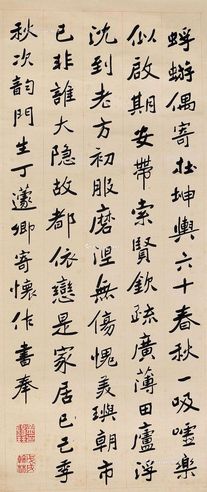 蜉蝣偶寄壯坤輿六十春秋一吸噓樂
似啟期安帶索賢欽疏廣薄田廬浮
沈到老方初服磨涅無傷愧美璵朝市
已非誰大隐故都依戀是家居已已季
秋次韵門生丁蘧卿寄懷作書奉